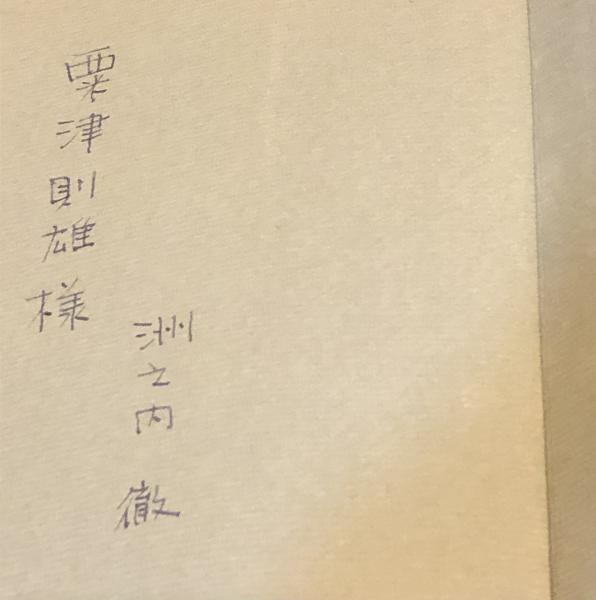 粟津則雄様
洲之内 徹